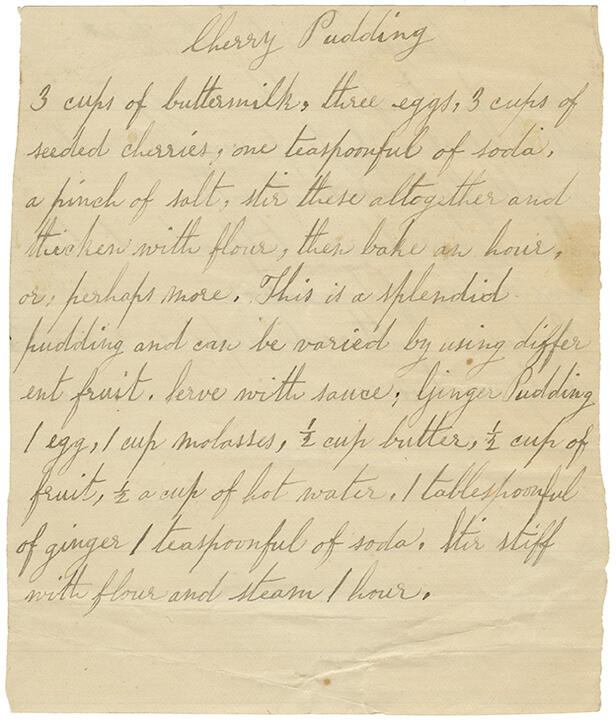 Cherry Pudding
3 cups of buttermilk, three eggs, 3 cups of
seeded cherries, one teaspoonful of soda,
a pinch of salt, stir these altogether and
thicken with flour, then bake an hour,
or, perhaps more. This is a splendid
pudding and can be varied by using differ
ent fruit. Serve with sauce, Ginger Pudding
1 egg, 1 cup molasses, ½ cup butter, ½ cup of
fruit, ½ a cup of hot water. 1 tablespoonful
of ginger 1 teaspoonful of soda. Stir stiff
with flour and steam 1 hour.